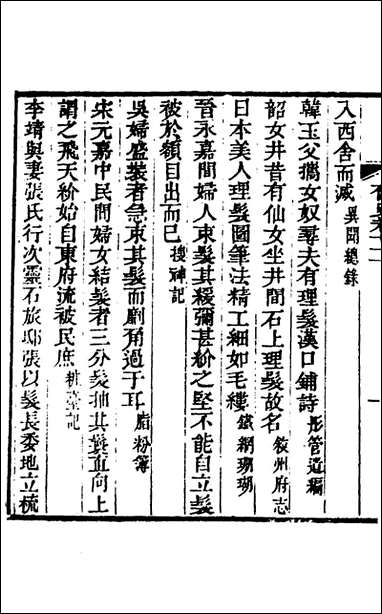 入西舍而滅異聞總錄
韓玉父攜女奴尋夫有理髮漢口鋪詩彤管遺編
韶女井昔有仙女坐井間石上理髮故名敘州府志
日本美人理髮圖筆法精工細如毛縷鐵網珊瑚
晉永嘉間婦人束髮其緩彌甚紒之堅不能自立髮
被於額目出而已搜神記
吳婦盛裝者急束其髮而劘角過于耳脂粉簿
宋元嘉中民間婦女結髮者三分髮抽其鬟直向上
謂之飛天紒始自東府流被民庶粧臺記
李靖與妻張氏行次靈石旅邸張以髮長委地立梳